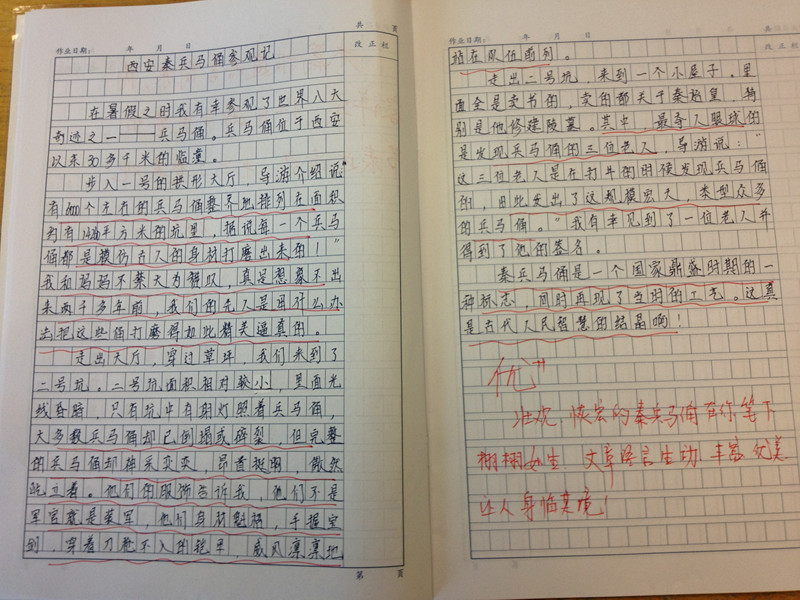 共 页
作业日期: 年 月 日
改 正 栏
西安秦兵马俑参观记
在暑假之时我有幸参观了世界八大
奇迹之一——兵马俑。兵马俑位于西安
以东30多千米的临潼。
步入一号的拱形大厅,导游介绍说"
有8000个左右的兵马俑整齐地排列在面积
约有14260平方米的坑里,据说每一个兵马
俑都是模仿古人的身材打磨出来的!"
我和妈妈不禁大为惊叹,真是想象不出
来两千多年前,我们的先人是用什么办
法把这些俑打磨得如此精美逼真的。
走出大厅,穿过草坪,我们来到了
二号坑。二号坑面积相对较小,里面光
线昏暗,只有坑中有明灯照着兵马俑,
大多数兵马俑却已倒塌或碎裂,但完整
的兵马俑却神采奕奕,昂首挺胸,傲然
屹立着。他们的服饰告诉我,他们不是
军官就是将军,他们身材魁梧,手握宝
剑,穿着刀枪不入的铠甲,威风凛凛地
第 页
作业日期: 年 月 日
共
改 正 栏
站在队伍前列。
走出二号坑,来到一个小屋子。里
面全是卖书的,卖的都关于秦始皇,特
别是他修建陵墓。其中,最夺人眼球的
是发现兵马俑的三位老人,导游说:"
这三位老人是在打井的时候发现兵马俑
的,由此挖出了这规模宏大,类型众多
的兵马俑。"我有幸见到了一位老人并
得到了他的签名。
秦兵马俑是一个国家鼎盛时期的一
种标志,同时再现了当时的工艺。这真
是古代人民智慧的结晶啊!
优
壮观、恢宏的秦兵马俑在你笔下
栩栩如生 文章语言生动 丰富 优美
让人身临其境!